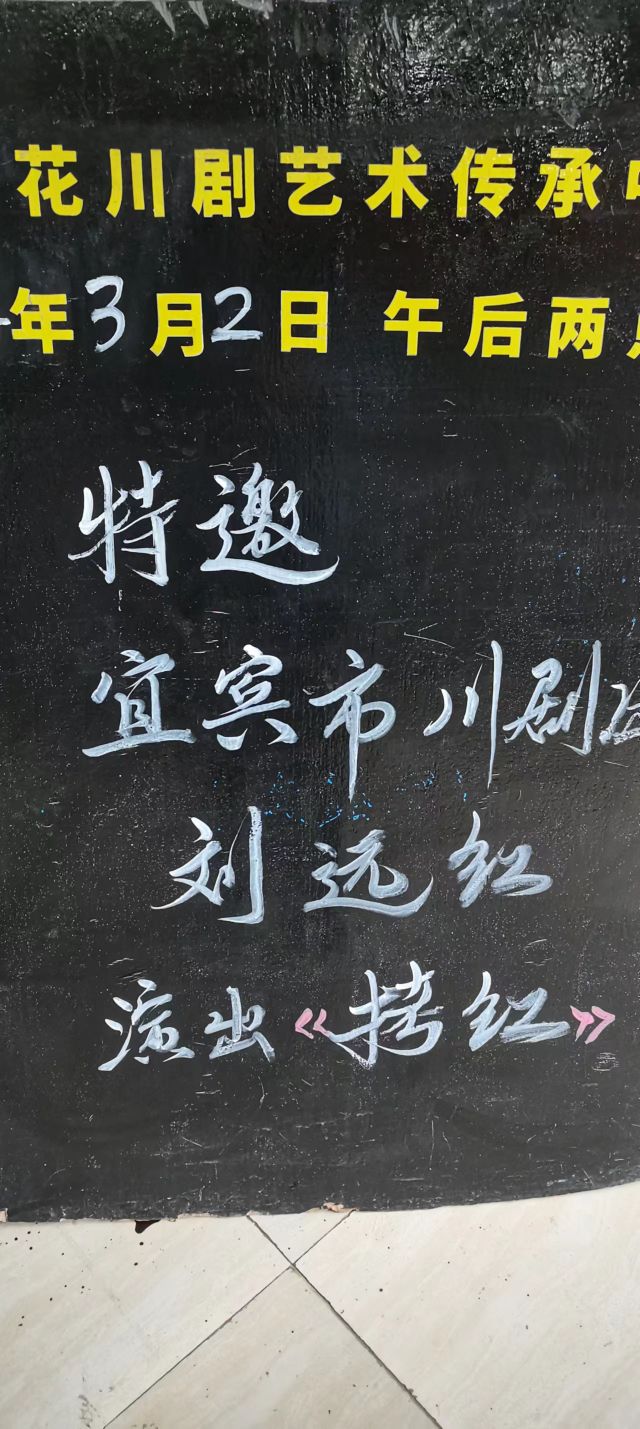 花川剧艺术传承
年3月2日 午后两
特邀
宜宾市川剧
刘远红
演出《拷红》